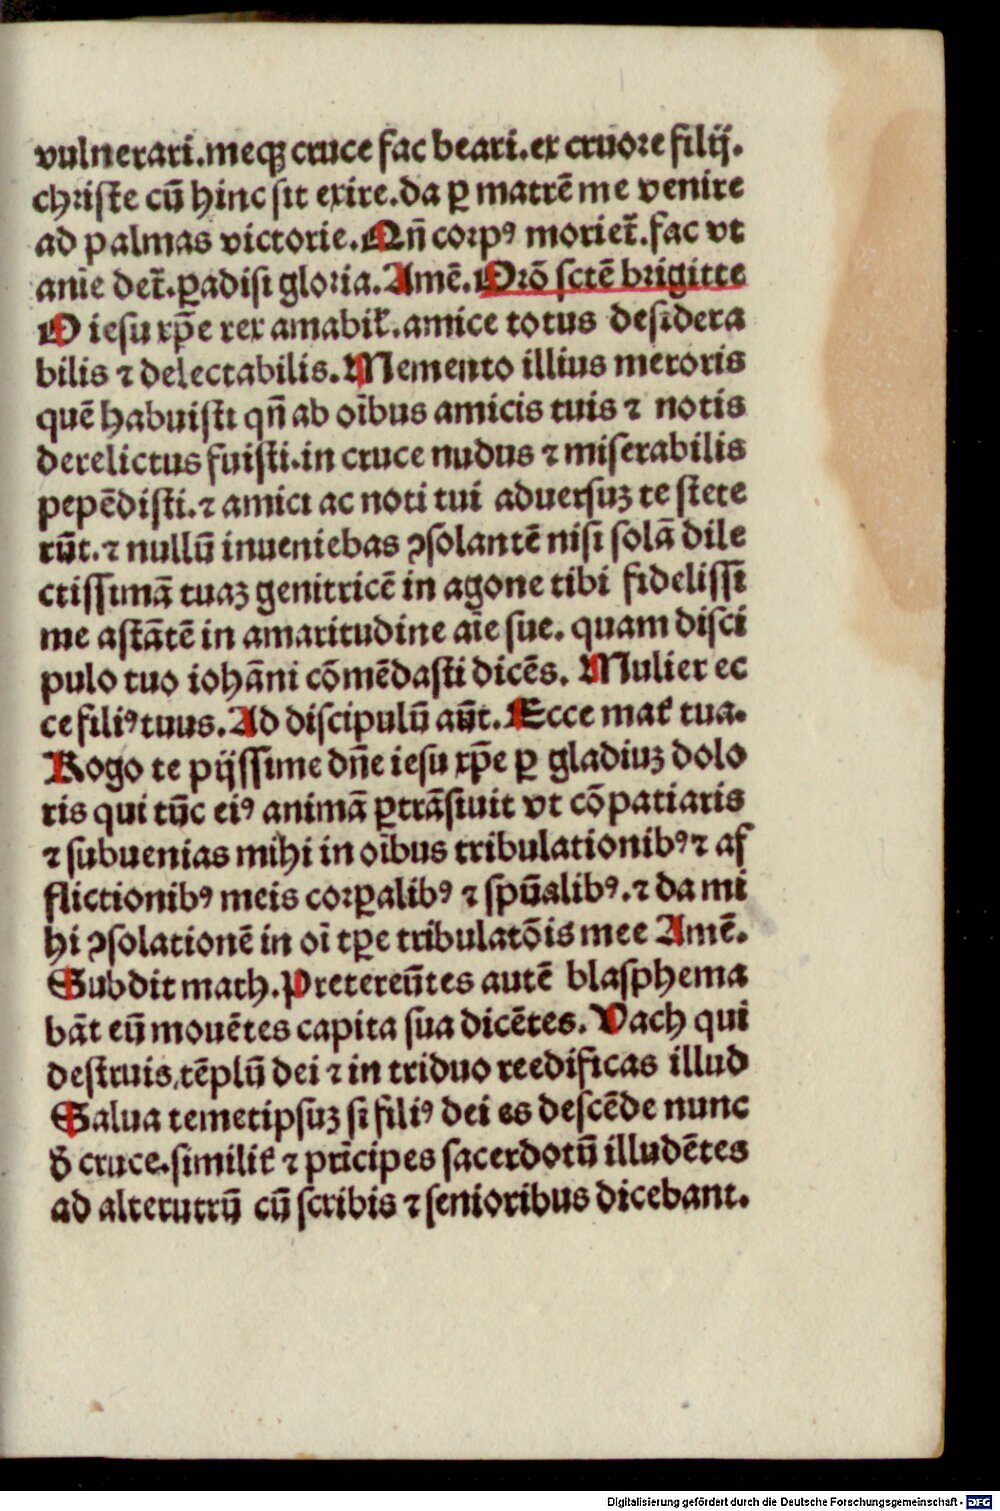 vulnerari.meqꝫ cruce fac beari.ex cruore filij.
christe cū hinc sit exire.da ꝑ matrē me venire
ad palmas victorie.Qn̄ corpꝰ morier̄.fac vt
anīe det̄.ꝑadisi gloria.Amē.Orō sctē brigitte
O iesu xp̄e rex amabil̄.amice totus desidera
bilis ⁊ delectabilis.Memento illius meroris
quē habuisti qn̄ ab oībus amicis tuis ⁊ notis
derelictus fuisti.in cruce nudus ⁊ miserabilis
pepēdisti.⁊ amici ac noti tui aduersuꝫ te stete
rūt.⁊ nullū inueniebas ꝯsolantē nisi solā dile
ctissimā tuaꝫ genitricē in agone tibi fidelissi
me astātē in amaritudine aīe sue. quam disci
pulo tuo iohāni cōmēdasti dicēs. Mulier ec
ce filiꝰ tuus.Ad discipulū aūt.Ecce mat̄ tua.
Rogo te pijssime dn̄e iesu xp̄e ꝑ gladiuꝫ dolo
ris qui tūc eiꝰ animā ꝑtrāsiuit vt cōpatiaris
⁊ subuenias mihi in oībus tribulationibꝰ ⁊ af
flictionibꝰ meis corꝑalibꝰ ⁊ spūalibꝰ.⁊ da mi
hi ꝯsolationē in oī tꝑe tribulatōis mee Amē.
Subdit math.Pretereūtes autē blasphema
bāt eū mouētes capita sua dicētes.Vach qui
destruis tēplū dei ⁊ in triduo reedificas illud
Salua temetipsuꝫ si filiꝰ dei es descēde nunc
d̄ cruce.similit̄ ⁊ prīcipes sacerdotū illudētes
ad alterutrū cū scribis ⁊ senioribus dicebant.
Digitalisierung gefördert durch die Deutsche Forschungsgemeinschaft - DFG